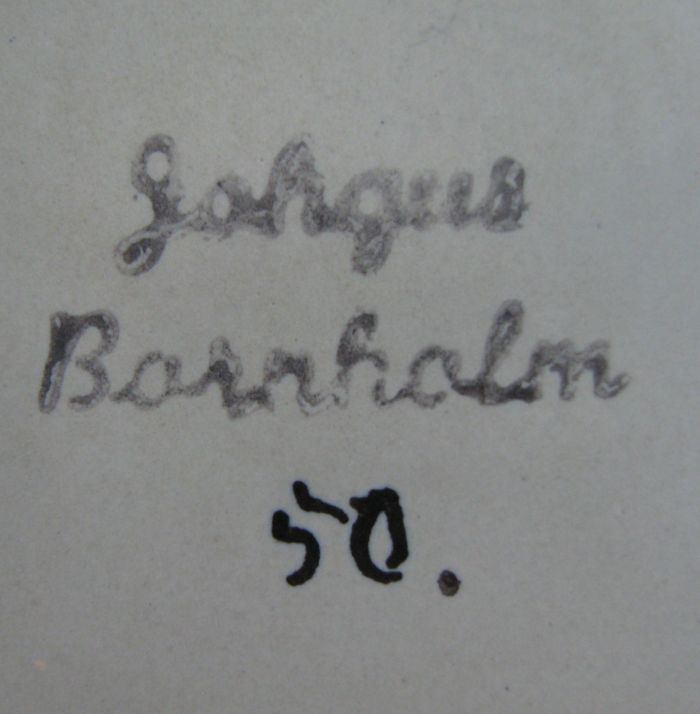 Johgus
Bornholm
50.